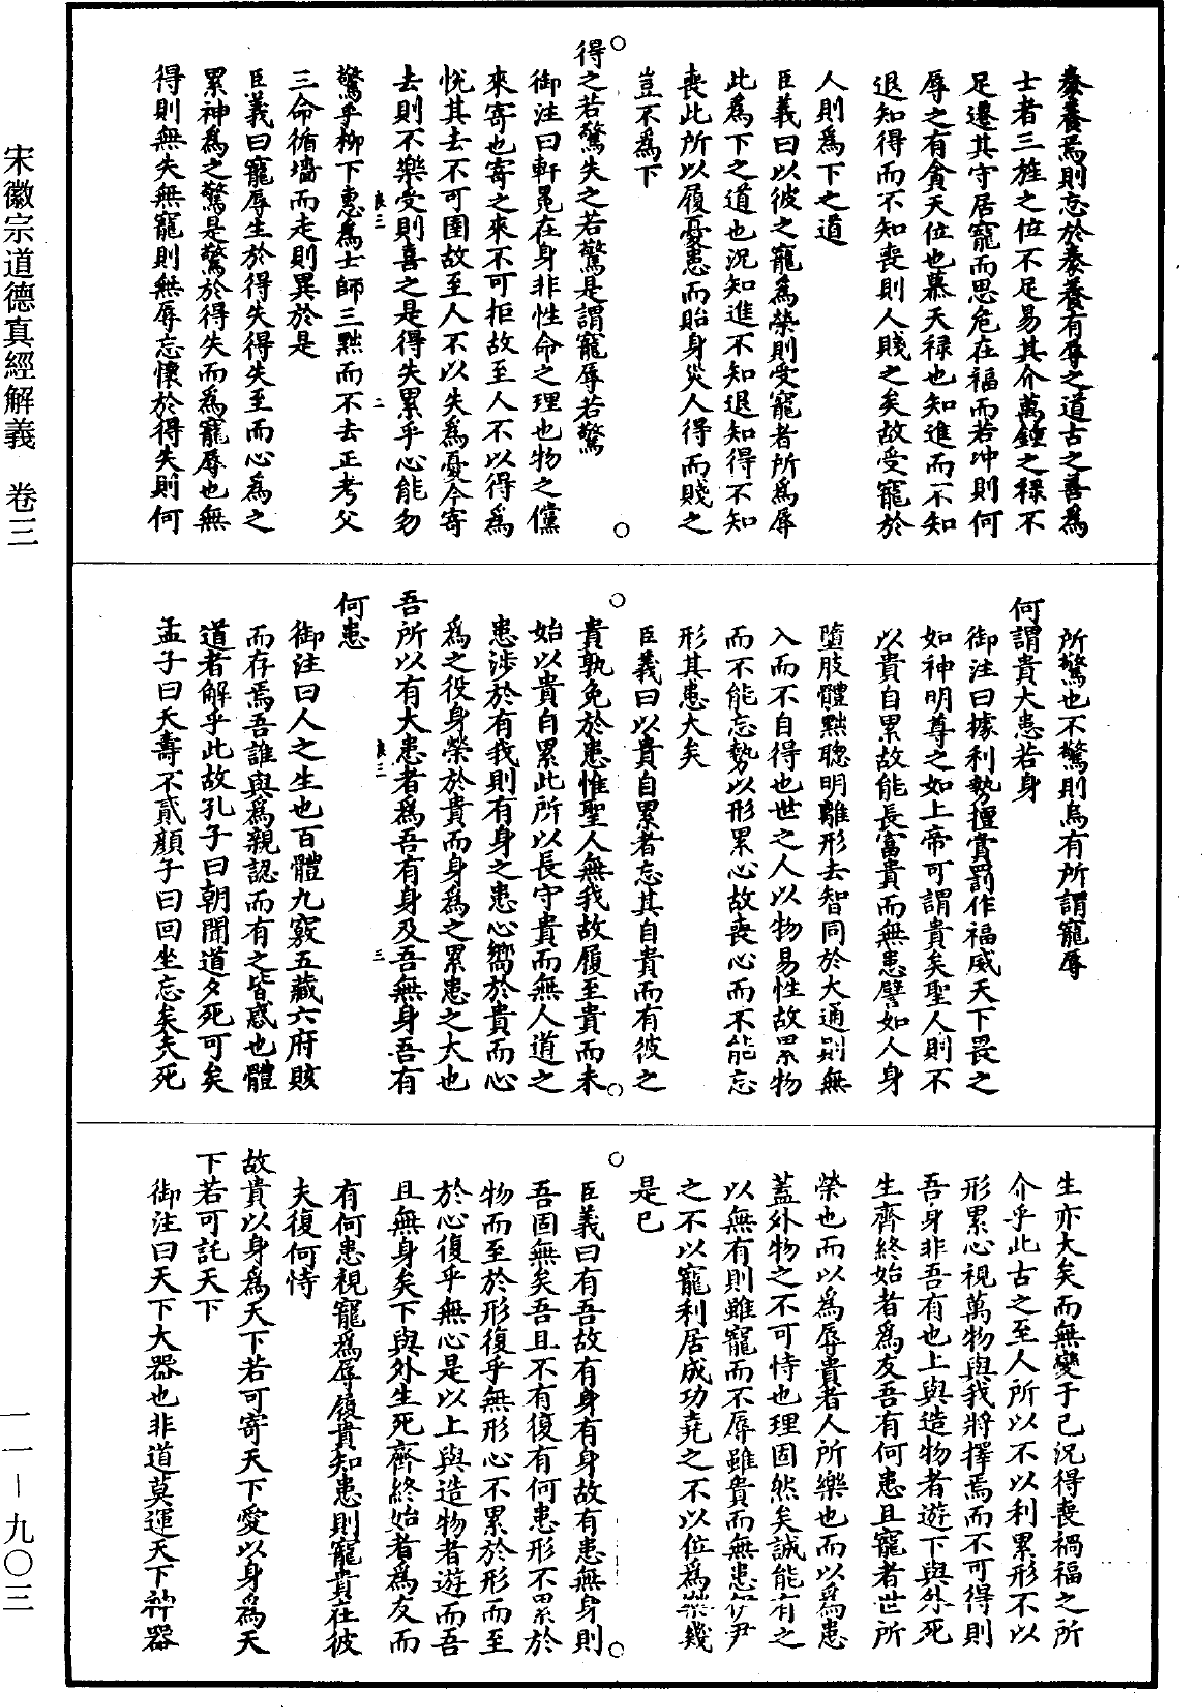 豢養焉則忘於豢養有辱之道古之善為
士者三旌之位不足易其介萬鍾之祿不
足遷其守居寵而思危在福而若沖則何
辱之有貪天位也慕天祿也知進而不知
退知得而不知喪則人賤之矣故受寵於
人則為下之道
臣義曰以彼之寵為榮則受寵者所為辱
此為下之道也況知進不知退知得不知
喪此所以履憂患而貽身災人得而賤之
豈不為下
得之若驚失之若驚是謂寵辱若驚
御注曰軒冕在身非性命之理也物之儻
來寄也寄之來不可拒故至人不以得為
悅其去不可圉故至人不以失為憂今寄
去則不樂受則喜之是得失累乎心能勿
良三
二
驚乎柳下惠為士師三黜而不去正考父
三命循墻而走則異於是
臣義曰寵辱生於得失得失至而心為之
累神為之驚是驚於得失而為寵辱也無
得則無失無寵則無辱忘懷於得失則何
所驚也不驚則烏有所謂寵辱
何謂貴大患若身
御注曰據利勢擅賞罰作福威天下畏之
如神明尊之如上帝可謂貴矣聖人則不
以貴自累故能長富貴而無患譬如人身
墮肢體黜聰明離形去智同於大通則無
入而不自得也世之人以物易性故累物
而不能忘勢以形累心故喪心而不能忘
形其患大矣
臣義曰以貴自累者忘其自貴而有彼之
貴孰免於患惟聖人無我故履至貴而未
始以貴自累此所以長守貴而無人道之
患涉於有我則有身之患心嚮於貴而心
為之役身榮於貴而身為之累患之大也
吾所以有大患者為吾有身及吾無身吾有
良三
三
何患
御注曰人之生也百體九竅五藏六府賅
而存焉吾誰與為親認而有之皆惑也體
道者解乎此故孔子曰朝聞道夕死可矣
孟子曰夭壽不貳顏子曰回坐忘矣夫死
生亦大矣而無變于已況得喪禍福之所
介乎此古之至人所以不以利累形不以
形累心視萬物與我將擇焉而不可得則
吾身非吾有也上與造物者遊下與外死
生齊終始者為友吾有何患且寵者世所
榮也而以為辱貴者人所樂也而以為患
蓋外物之不可恃也理固然矣誠能有之
以無有則雖寵而不辱雖貴而無患伊尹
之不以寵利居成功堯之不以位為樂幾
是已
臣義曰有吾故有身有身故有患無身則
吾固無矣吾且不有復有何患形不累於
物而至於形復乎無形心不累於形而至
於心復乎無心是以上與造物者遊而吾
且無身矣下與外生死齊終始者為友而
有何患視寵為辱履貴知患則寵貴在彼
夫復何恃
故貴以身為天下若可寄天下愛以身為天
下若可託天下
御注曰天下大器也非道莫運天下神器
宋徽宗道德真經解義　卷三
一一－九〇三